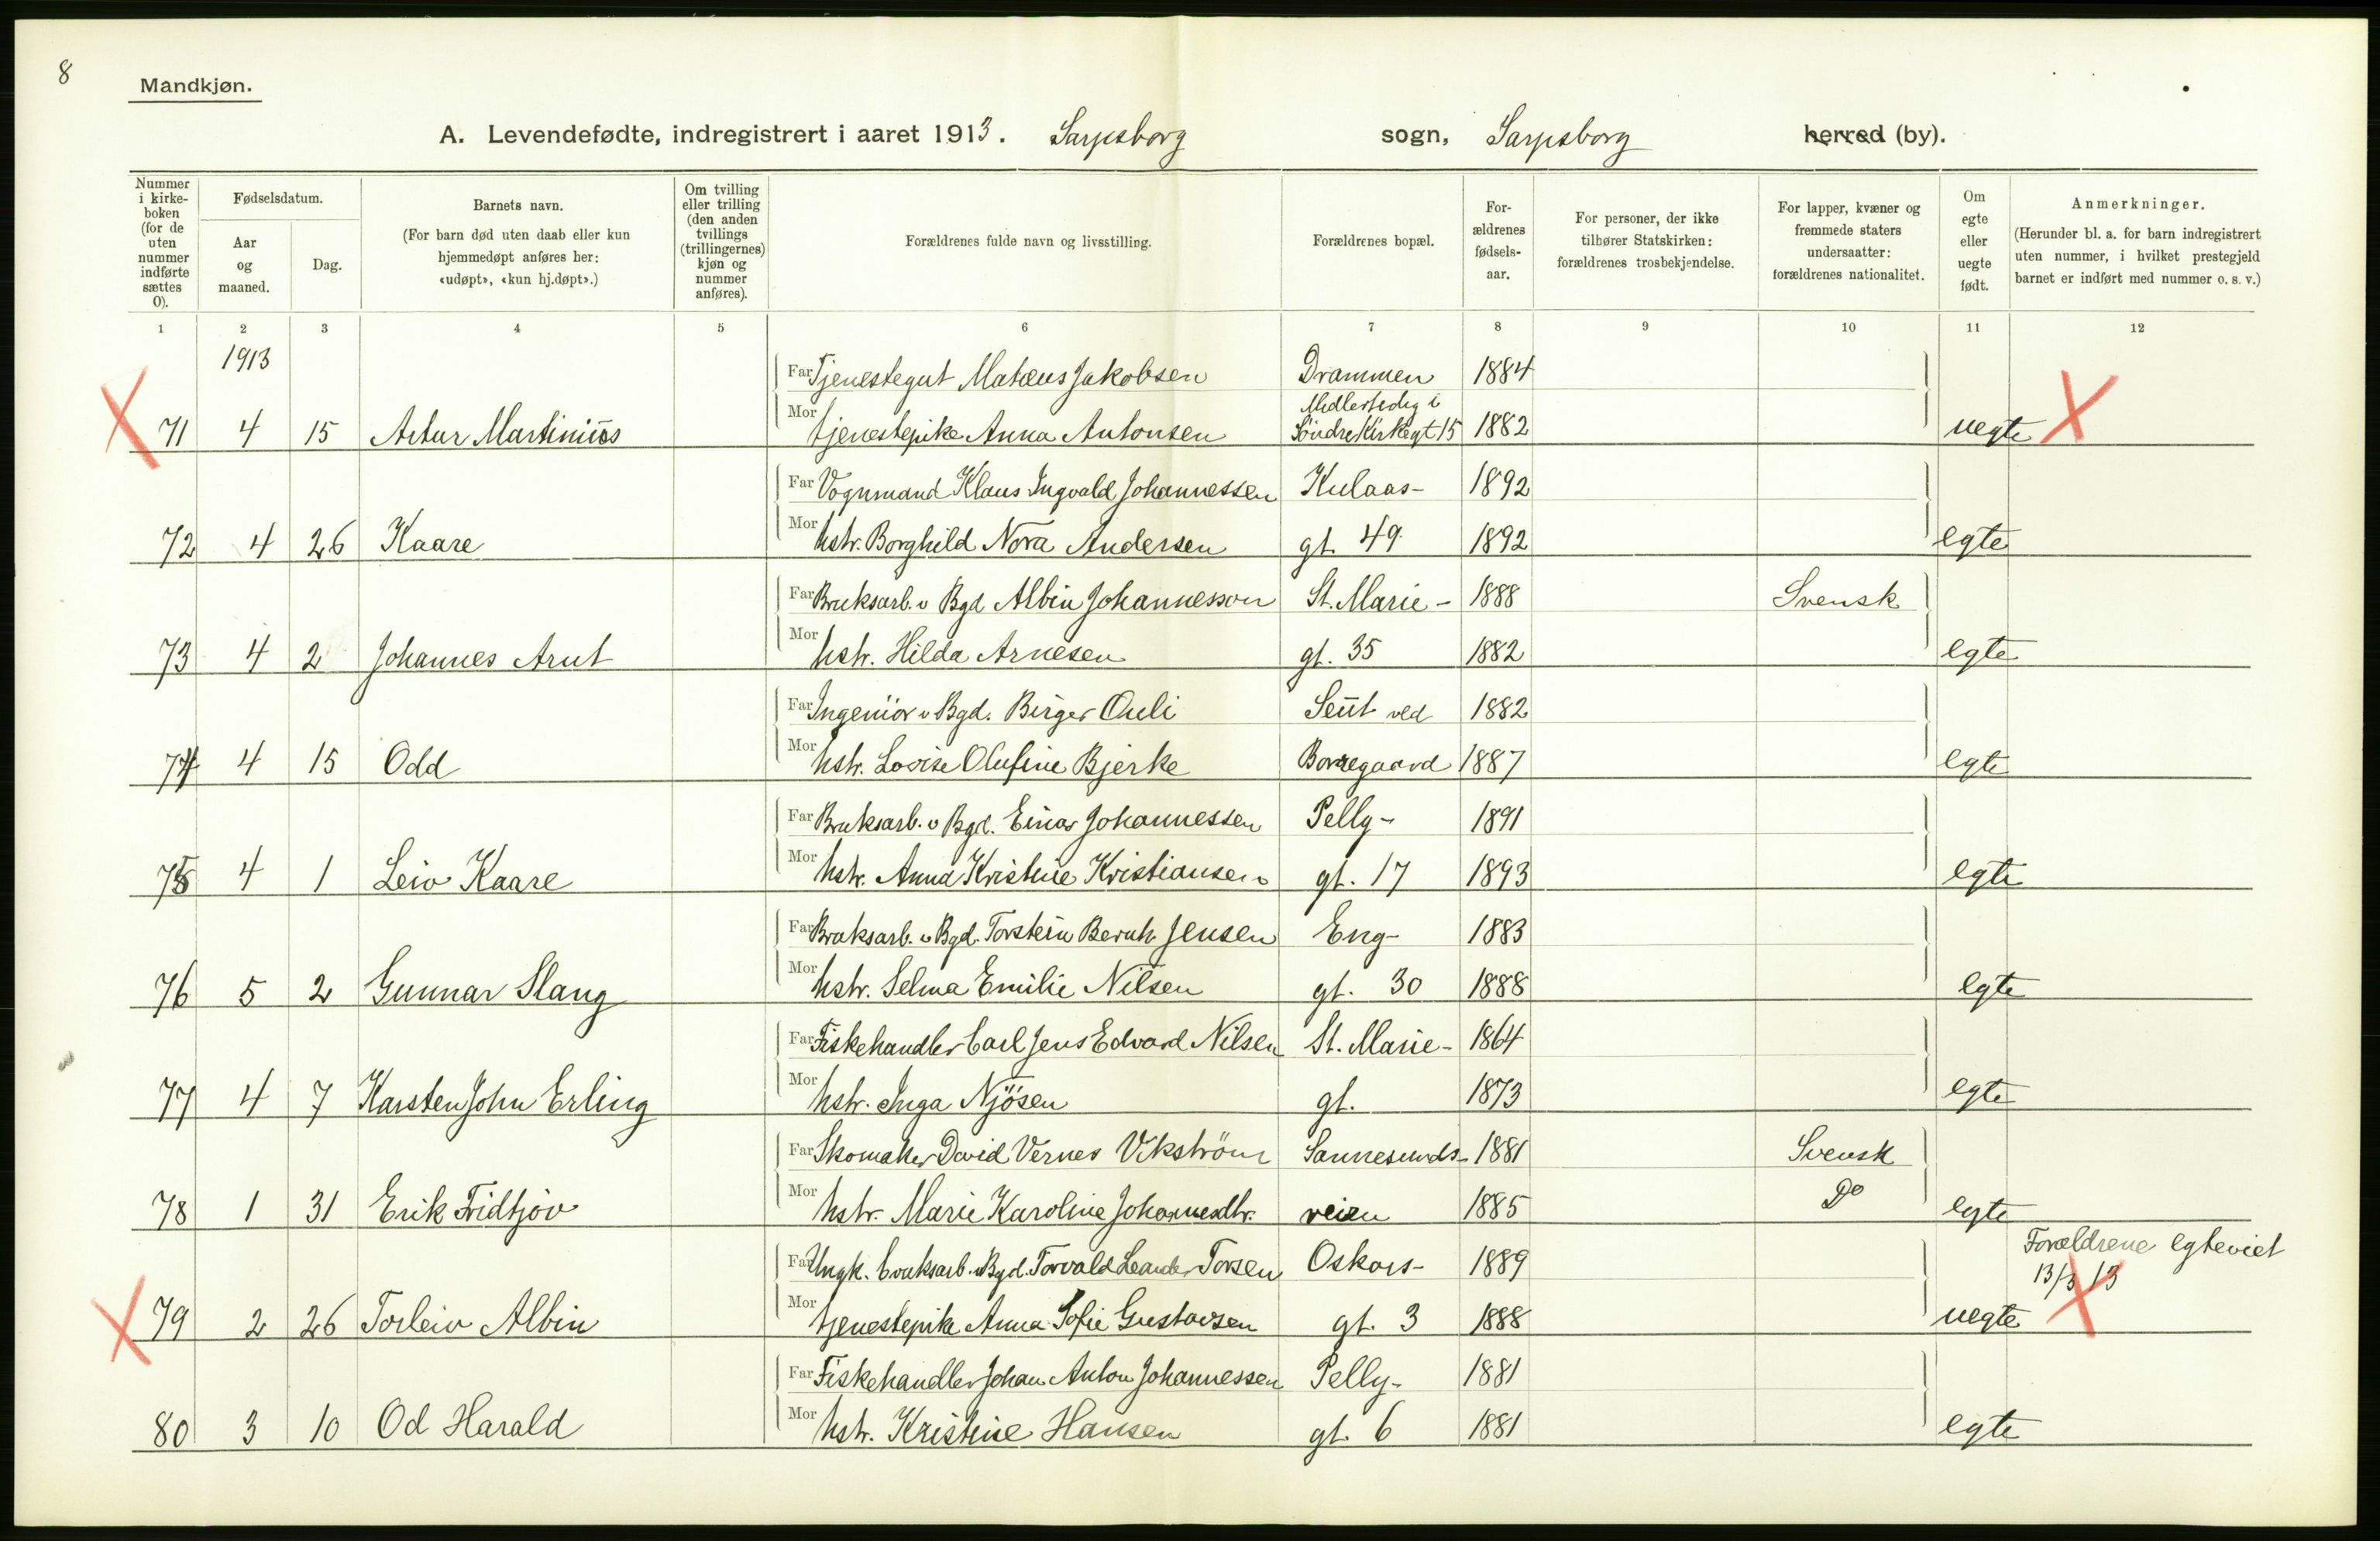 8
Mandkjøn.
A. Levendefødte, indregistrert i aaret 1913. Sarpsborg sogn, Sarpsborg herred (by).
Nummer i kirke-boken (for de uten nummer indførte sættes 0).
Fødselsdatum.
Aar og maaned.
Dag.
Barnets navn.
(For barn død uten daab eller kun hjemmedøpt anføres her: «udøpt», «kun hj.døpt».)
Om tvilling eller trilling (den anden tvillings (trillingernes) kjøn og nummer anføres).
Forældrenes fulde navn og livsstilling.
Forældrenes bopæl.
For-ældrenes fødsels-aar.
For personer, der ikke tilhører Statskirken: forældrenes trosbekjendelse.
For lapper, kvæner og fremmede staters undersaatter: forældrenes nationalitet.
Om egte eller uegte født.
Anmerkninger.
(Herunder bl. a. for barn indregistrert uten nummer, i hvilket prestegjeld barnet er indført med nummer o. s. v.)
1 2 3 4 5 6 7 8 9 10 11 12
1913
Far Tjenestegut Matæus Jakobsen Drammen 1884
Midlertidig i
71 4 15 Artur Martinius Mor tjenestepike Anna Antonsen Söndre Kirkegt 15 1882 uegte
Far Vognmand Klaus Ingvald Johannessen Kulaas- 1892
72 4 26 Kaare Mor hstr. Borghild Nora Andersen gt. 49 1892 egte
Far Bruksarb. v Bgd Albin Johannesson St. Marie- 1888 Svensk
73 4 2 Johannes Arnt Mor hstr. Hilda Arnesen gt. 35 1882 egte
Far Ingeniör v Bgd. Birger Opli Seut ved 1882
74 4 15 Odd Mor hstr. Lovise Olufine Bjerke Borregaard 1887 egte
Far Bruksarb. v Bgd. Einar Johannessen Pelly- 1891
75 4 1 Leiv Kaare Mor hstr. Anna Kristine Kristiansen gt. 17 1893 egte
Far Bruksarb. v Bgd. Torstein Bernh. Jensen Eng- 1883
76 5 2 Gunnar Slang Mor hstr. Selma Emilie Nilsen gt. 30 1888 egte
Far Fiskehandler Carl Jens Edvard Nilsen St. Marie- 1864
77 4 7 Karsten John Erling Mor hstr. Inga Njösen gt. 1873 egte
Far Skomaker David Verner Vikström Sannesunds- 1881 Svensk
78 1 31 Erik Fridtjov Mor hstr. Marie Karoline Johannesdtr. veien 1885 Do egte
Far Ungk. bruksarb. v Bgd. Torvald Leander Torsen Oskars- 1889 Forældrene egteviet
13/3 13
79 2 26 Torleiv Albin Mor tjenestepike Anna Sofie Gustavsen gt. 3 1888 uegte
Far Fiskehandler Johan Anton Johannessen Pelly- 1881
80 3 10 Od Harald Mor hstr. Kristine Hansen gt. 6 1881 egte